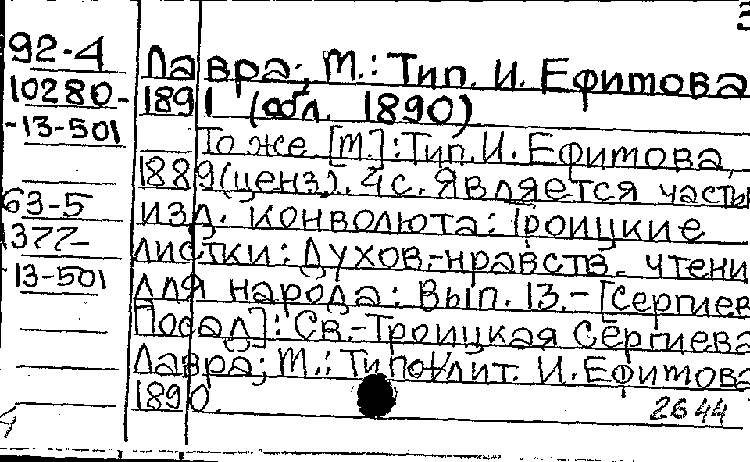 92-4
10280-
-13-501
63-5
1377-
-13-501
Лавра; М.: Тип. И. Ефитова
1891 (обл. 1890)
То же [М.]: Тип. И. Ефимова,
1889(ценз). 4с. Является часть
изд. конволюта: Троицкие
листки: Духов.-нравств. чтени
для народа: Вып. 13.- [Сергиев
Посад]: Св.-Троицкая Сергиева
Лавра; М.: Типо-лит. И. Ефимова
1890.
2644